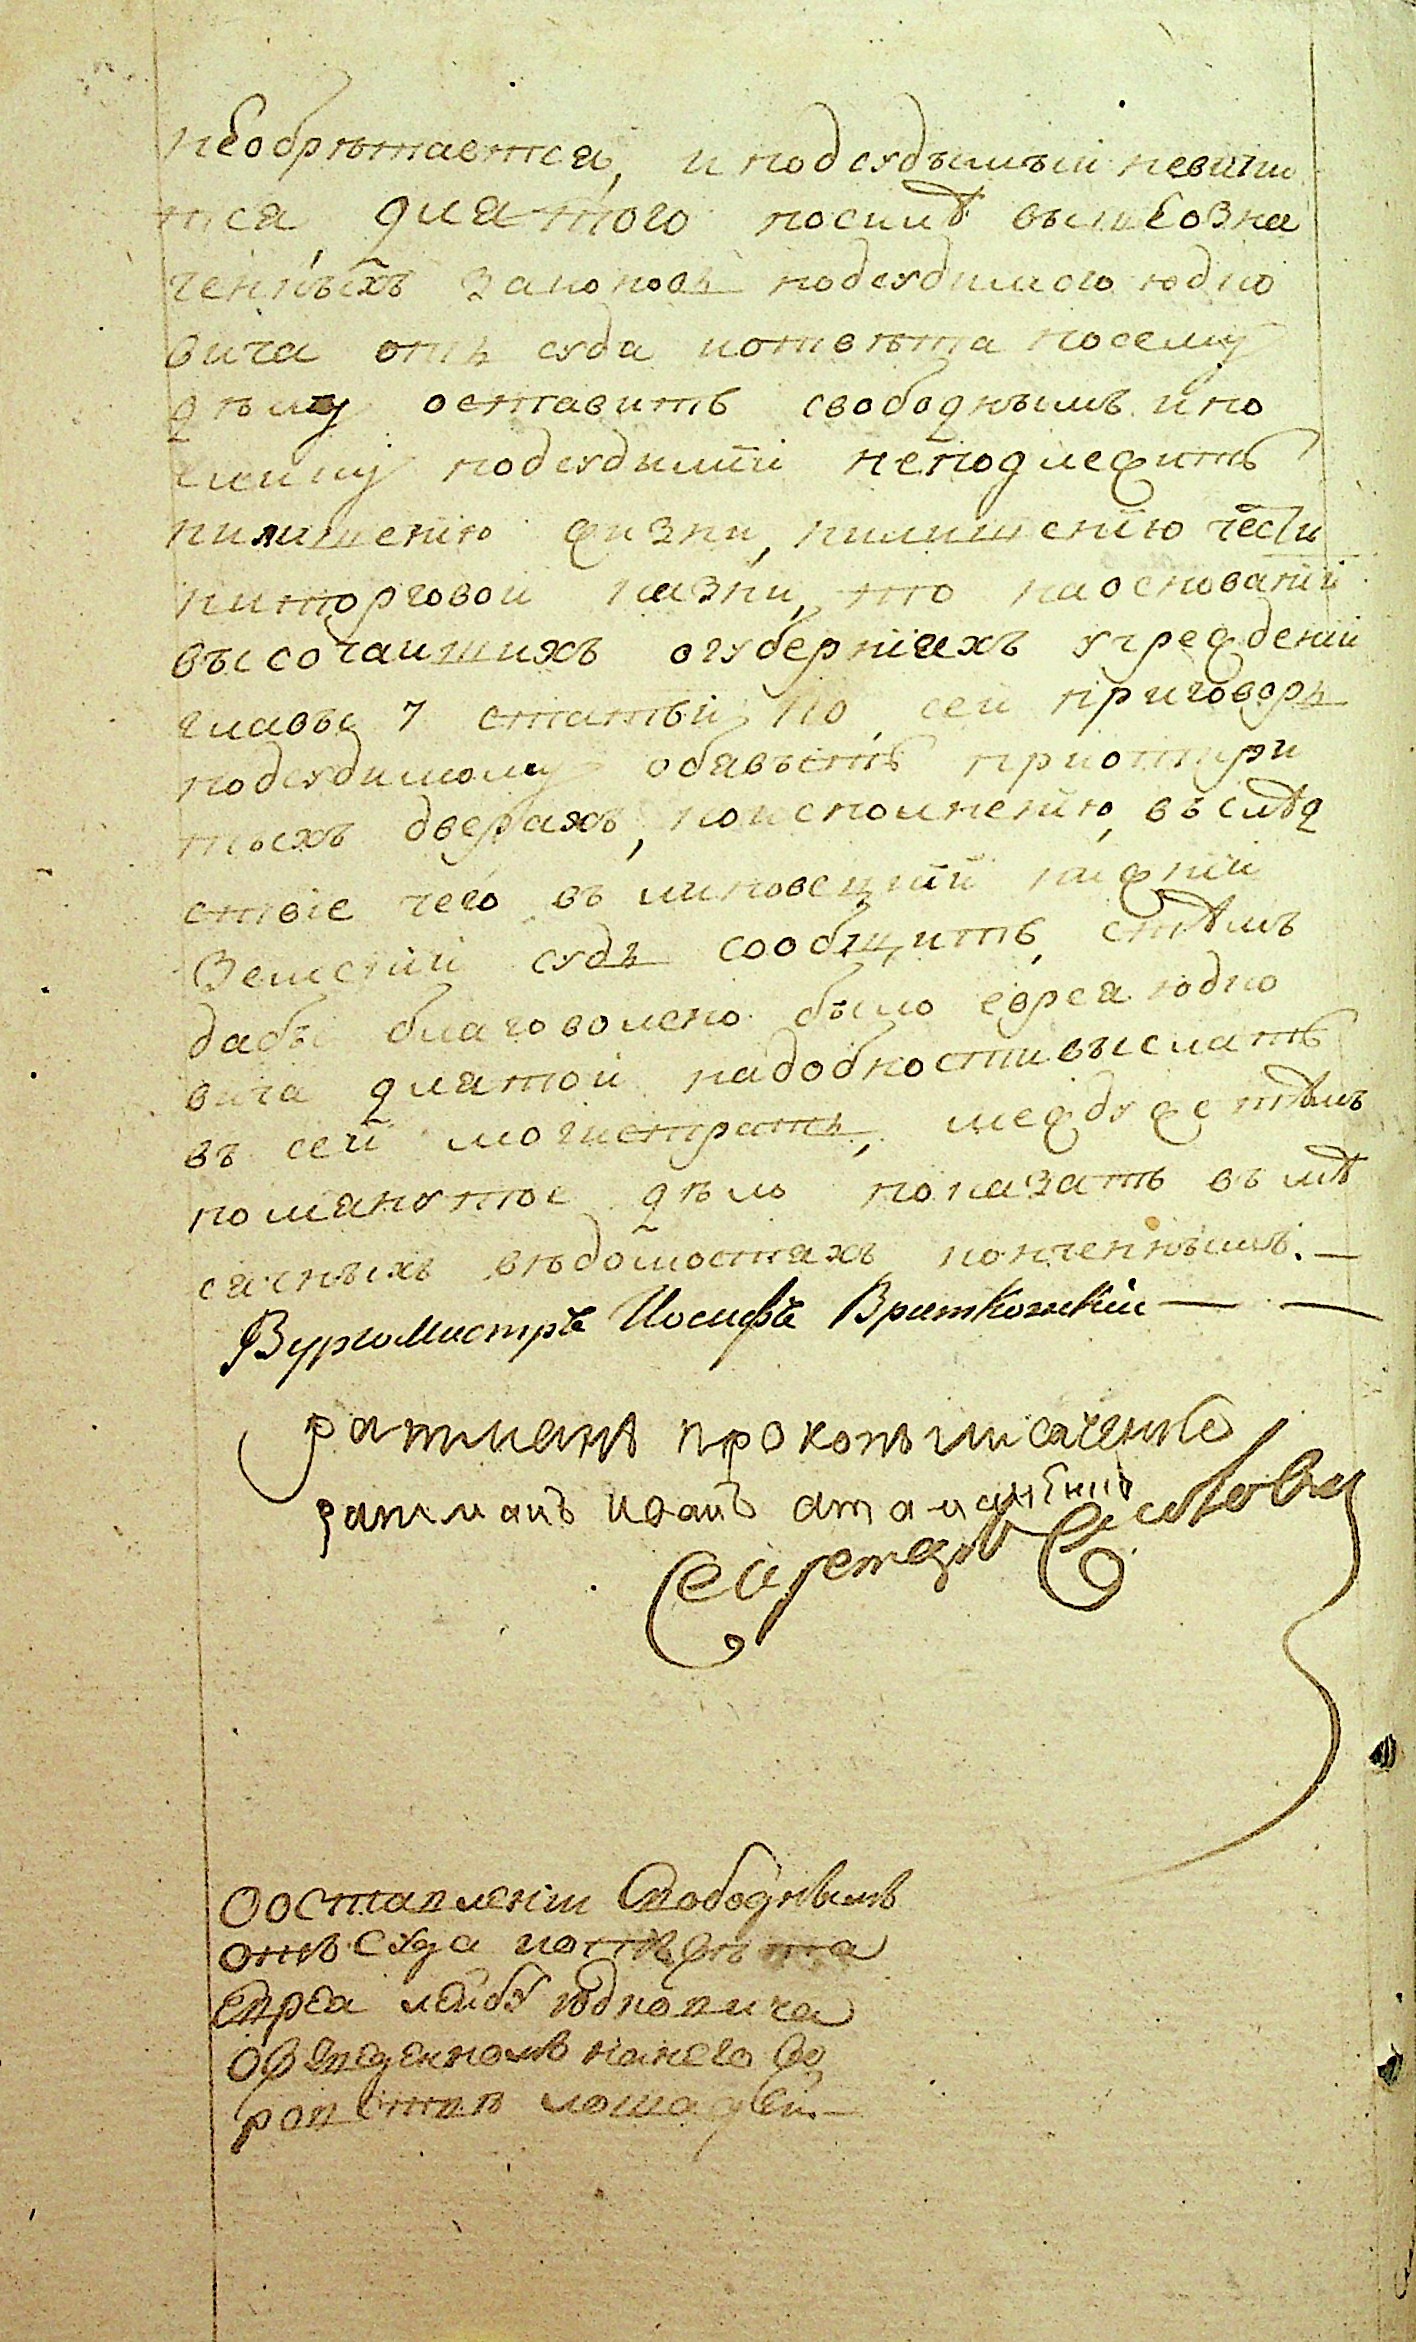 необрѣтается, и подсудымый невини
тся, для того посилѣ вышеозна
ченныхъ законовъ подсудимого юдко
вича отъ суда иотвѣта посему
дѣлу оставить свободнымъ ипо
елику подсудимый неподлежитъ
нилишению жизни, нилишению чести
ниторговой казни, то наосновании
высочаишихъ огубернияхъ учреждении
главы 7 статьи, то сей приговоръ
подсудимому обявысть приоткри
тыхъ дверяхъ, поисполнению, въслѣд
ствіе чего въ липовецкий нижний
Земский судъ сообщить, стѣмъ
дабы благоволено было еврея юдко
вича длятой надобности выслать
въ сей могистратъ, между же тѣмъ
помянутое дѣло показать въ мѣ
сячныхъ вѣдомостяхъ конченнымъ. —
Бургомистръ Иосифъ Братковский — —
ратманъ прокопъ лисаченко
ратманъ иванъ атаманенко
Секретарь
Ооставлении Свободнымъ
отъ Суда иотвѣта
Еврея лейбу юдковича
Обвѣденномъ нанего во
ровствѣ лошадей —